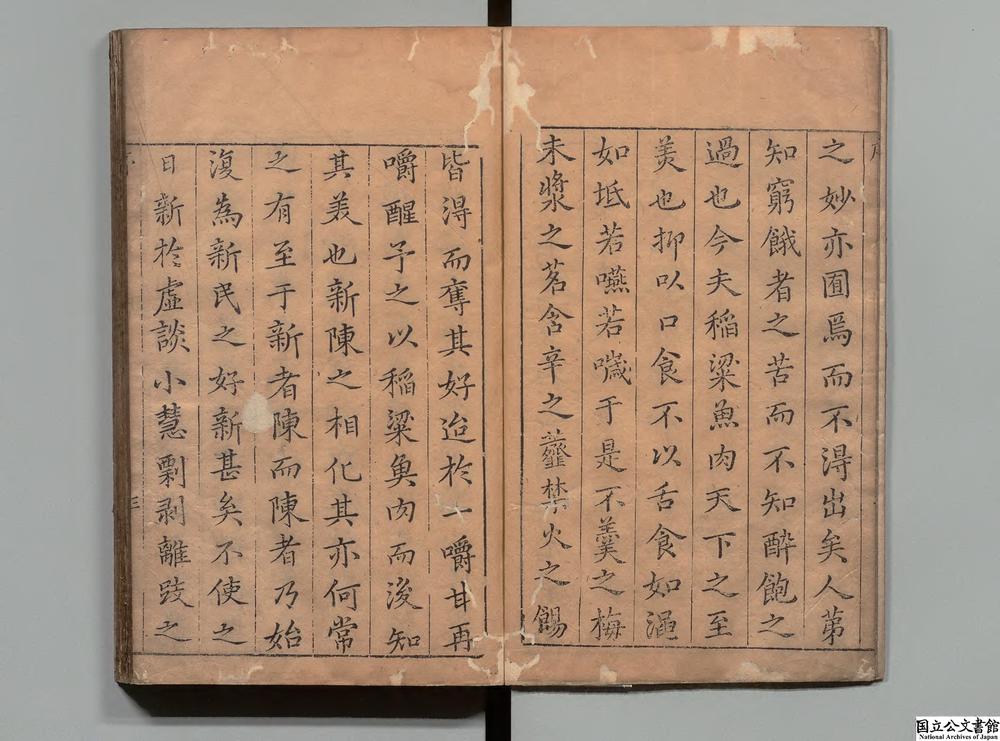 之妙亦囿焉而不得出矣人第
知窮餓者之苦而不知醉飽之
過也今夫稻粱魚肉天下之至
羙也抑以口食不以舌食如溫
如坻若嚥若噦于是不羹之梅
未漿之茗含辛之虀禁火之餳
皆得而奪其好迨於一嚼甘再
嚼醒予之以稻粱魚肉而後知
其羙也新陳之相化其亦何常
之有至于新者陳而陳者乃始
復為新民之好新甚矣不使之
日新於虛談小慧剽剥離跂之
三
国立公文書館
National Archives of Japan